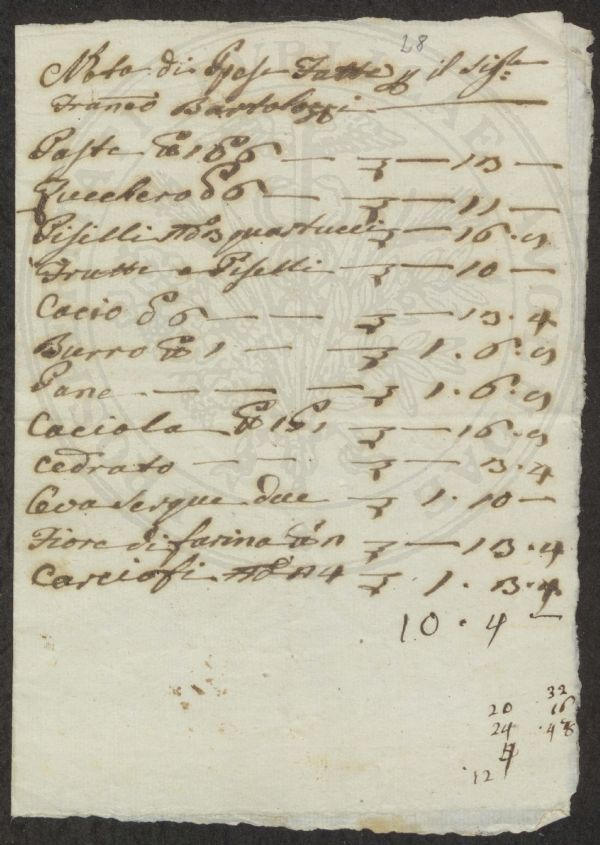 28
Nota di Spese Fatte il Sigre
Franco Bartolozzi
Paste 1 6 — — 13 —
Zucchero 6 — — 11 —
Piselli quartucci — 16 . 9
Frutti e Piselli — 10 —
Cacio 6 — — — 13 . 4
Burro 1 — — 1 . 6 . 9
Pane — — — 1 . 6 . 9
Caciola — 16 . 9
cedrato — — — 3 . 4
Ova Serque due 1 . 10 —
Fiore di farina — 13 . 4
Carciofi 4 1 . 13 . 4
10 . 4 —
32
20 16
24 48
12